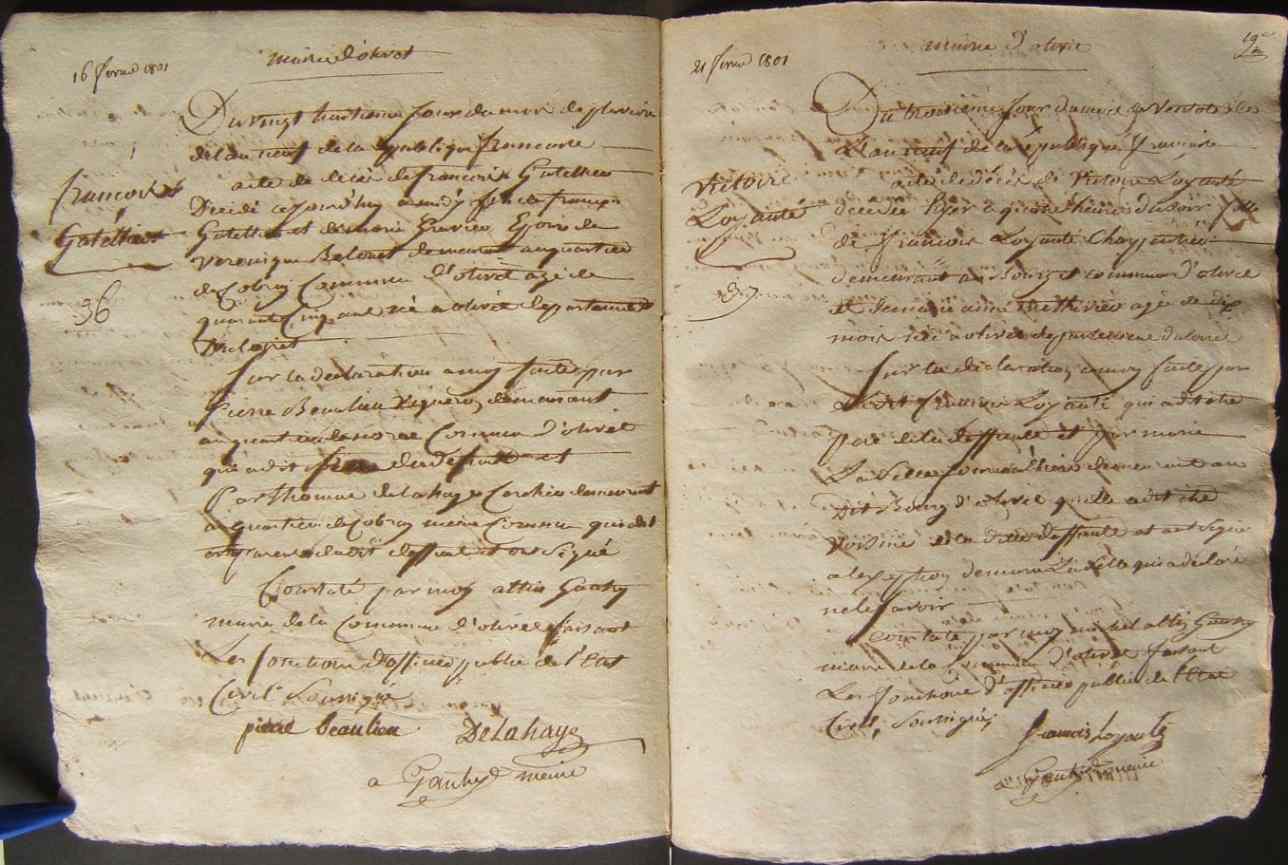 16 fevrier 1801
Mairie d'olivet
Du vingt huitieme jour du mois de pluviose
de l'an neuf de la republique francoise
acte de décès de francois Gatellier
Décédé cejourd'huy a midy fils de françois
Gatellier et de marie epoux de
Veronique demeurant au quartier
de Cobray Commune d'olivet agé de
quarante cinq ans né a olivet departement
Du Loiret
francois
Gatellier
36
Sur la declaration a moy faite par
Pierre Beaulieu Vigneron demeurant
au quartier Commune d'olivet
qui a dit du deffunt et
Par Thomas delahaye demeurant
au quartier de Cobray meme Commune qui a dit
dudit deffunt et ont signé
Constaté par moy Gauthy
maire de la Commune d'olivet faisant
Les fonctions d'officier public de l'Etat
Civil Soussigné
pierre beaulieu DeLahaye
a Gauthy maire
19e
21 fevrier 1801
Mairie d'olivet
Du troisieme jour du mois de Ventose
de L'an neuf de la république francoise
acte de décès de Victoire Loyauté
décédée hyer a heures du soir fille
de francois Loyauté Charpentier
demeurant au bourg et commune d'olivet
et de marie anne agée de dix
mois née a olivet departement du loiret
Victoire
Loyauté
37
Sur la déclaration a moy faite par
Ledit francois Loyauté qui a dit etre
pere de la deffunte et par marie
demeurant au
Dit Bourg d'olivet quelle a dit etre
Voisine de la dite deffunte et ont signé
a l'exception de marie qui a déclaré
ne le savoir
Constaté par moy Gauthy
maire de la Commune d'olivet faisant
Les fonctions d'officier public de l'Etat
Civil, Soussigné
francois Loyauté
a Gauthy maire